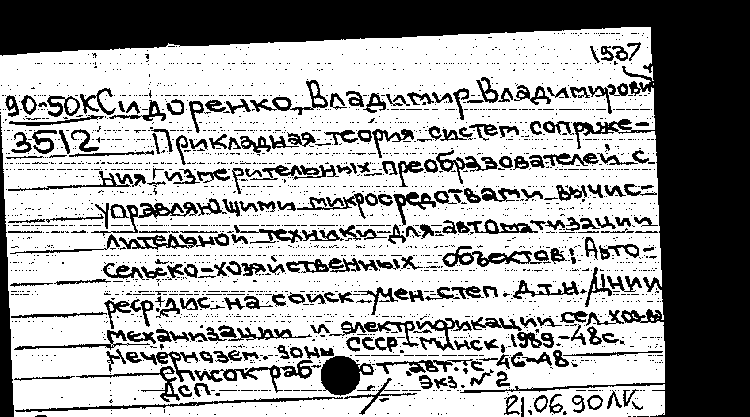 1937
90-50К Сидоренко, Владимир Владимирович
3512 Прикладная теория систем сопряже-
ния измерительных преобразователей с
управляющими микросредствами вычис-
лительной техники для автоматизации
сельско-хозяйственных объектов: Авто-
реф. дис. на соиск. учен. степ. д.т.н. / ЦНИИ
механизации и электрификации сел. хоз-ва
Нечернозем. зоны СССР.- Минск, 1989.-48с.
Список работ авт.: с. 46-48.
ДСП. Экз. №2
21.06.90 ЛК